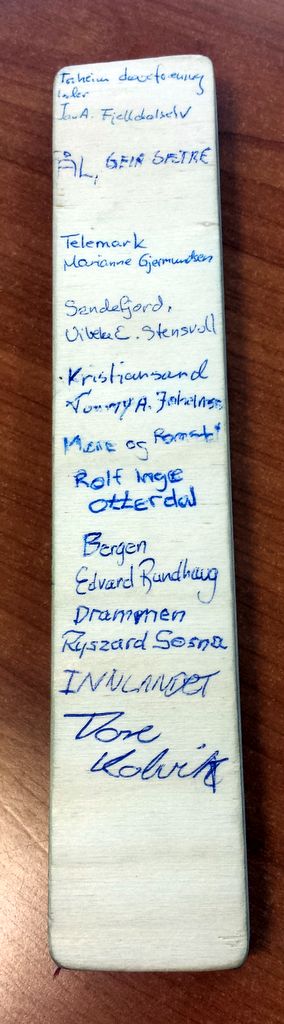 døveforening
leder
Jan A. Fjelldalselv
ÅL, GEIR SÆTRE
Telemark
Marianne Gjermundsen
Sandefjord,
Vibeke E. Stensvoll
Kristiansand
Tommy A.
Møre og Romsdal
Rolf Inge
Otterdal
Bergen
Edvard Rundhaug
Drammen
Ryszard Sosna
INNLANDET
Tore
Kolvik